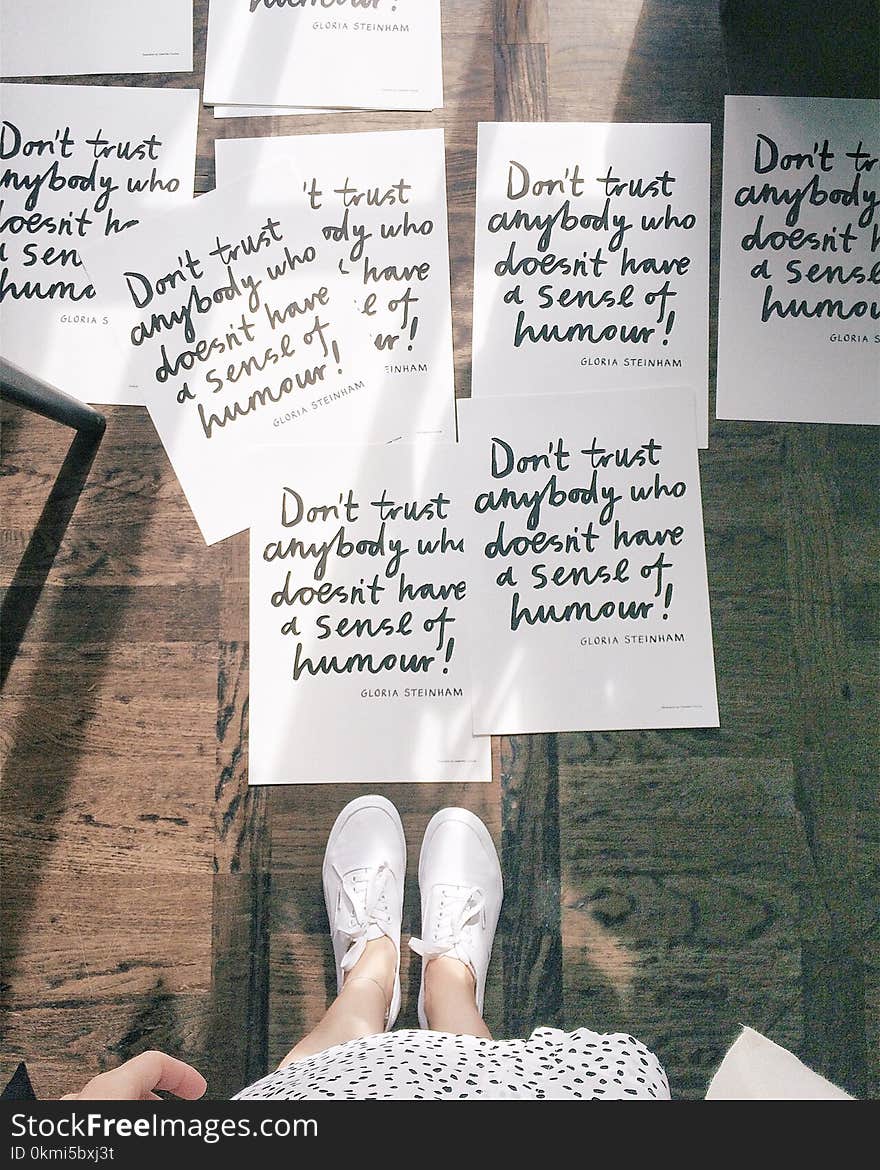 humour!
GLORIA STEINHAM
Don't trust
nybody who
doesn't ha
a sen
huma
GLORIA S
't trust
ody who
have
e of
ur!
EINHAM
Don't trust
anybody who
doesn't have
a sense of
humour!
GLORIA STEINHAM
Don't trust
anybody who
doesn't have
a sense of
humour!
GLORIA STEINHAM
Don't tr
anybody
doesn't h
a sense
humou
GLORIA S
Don't trust
anybody who
doesn't have
a sense of
humour!
GLORIA STEINHAM
Don't trust
anybody who
doesn't have
a sense of
humour!
GLORIA STEINHAM
StockFreeImages.com
ID 0kmi5bxj3t